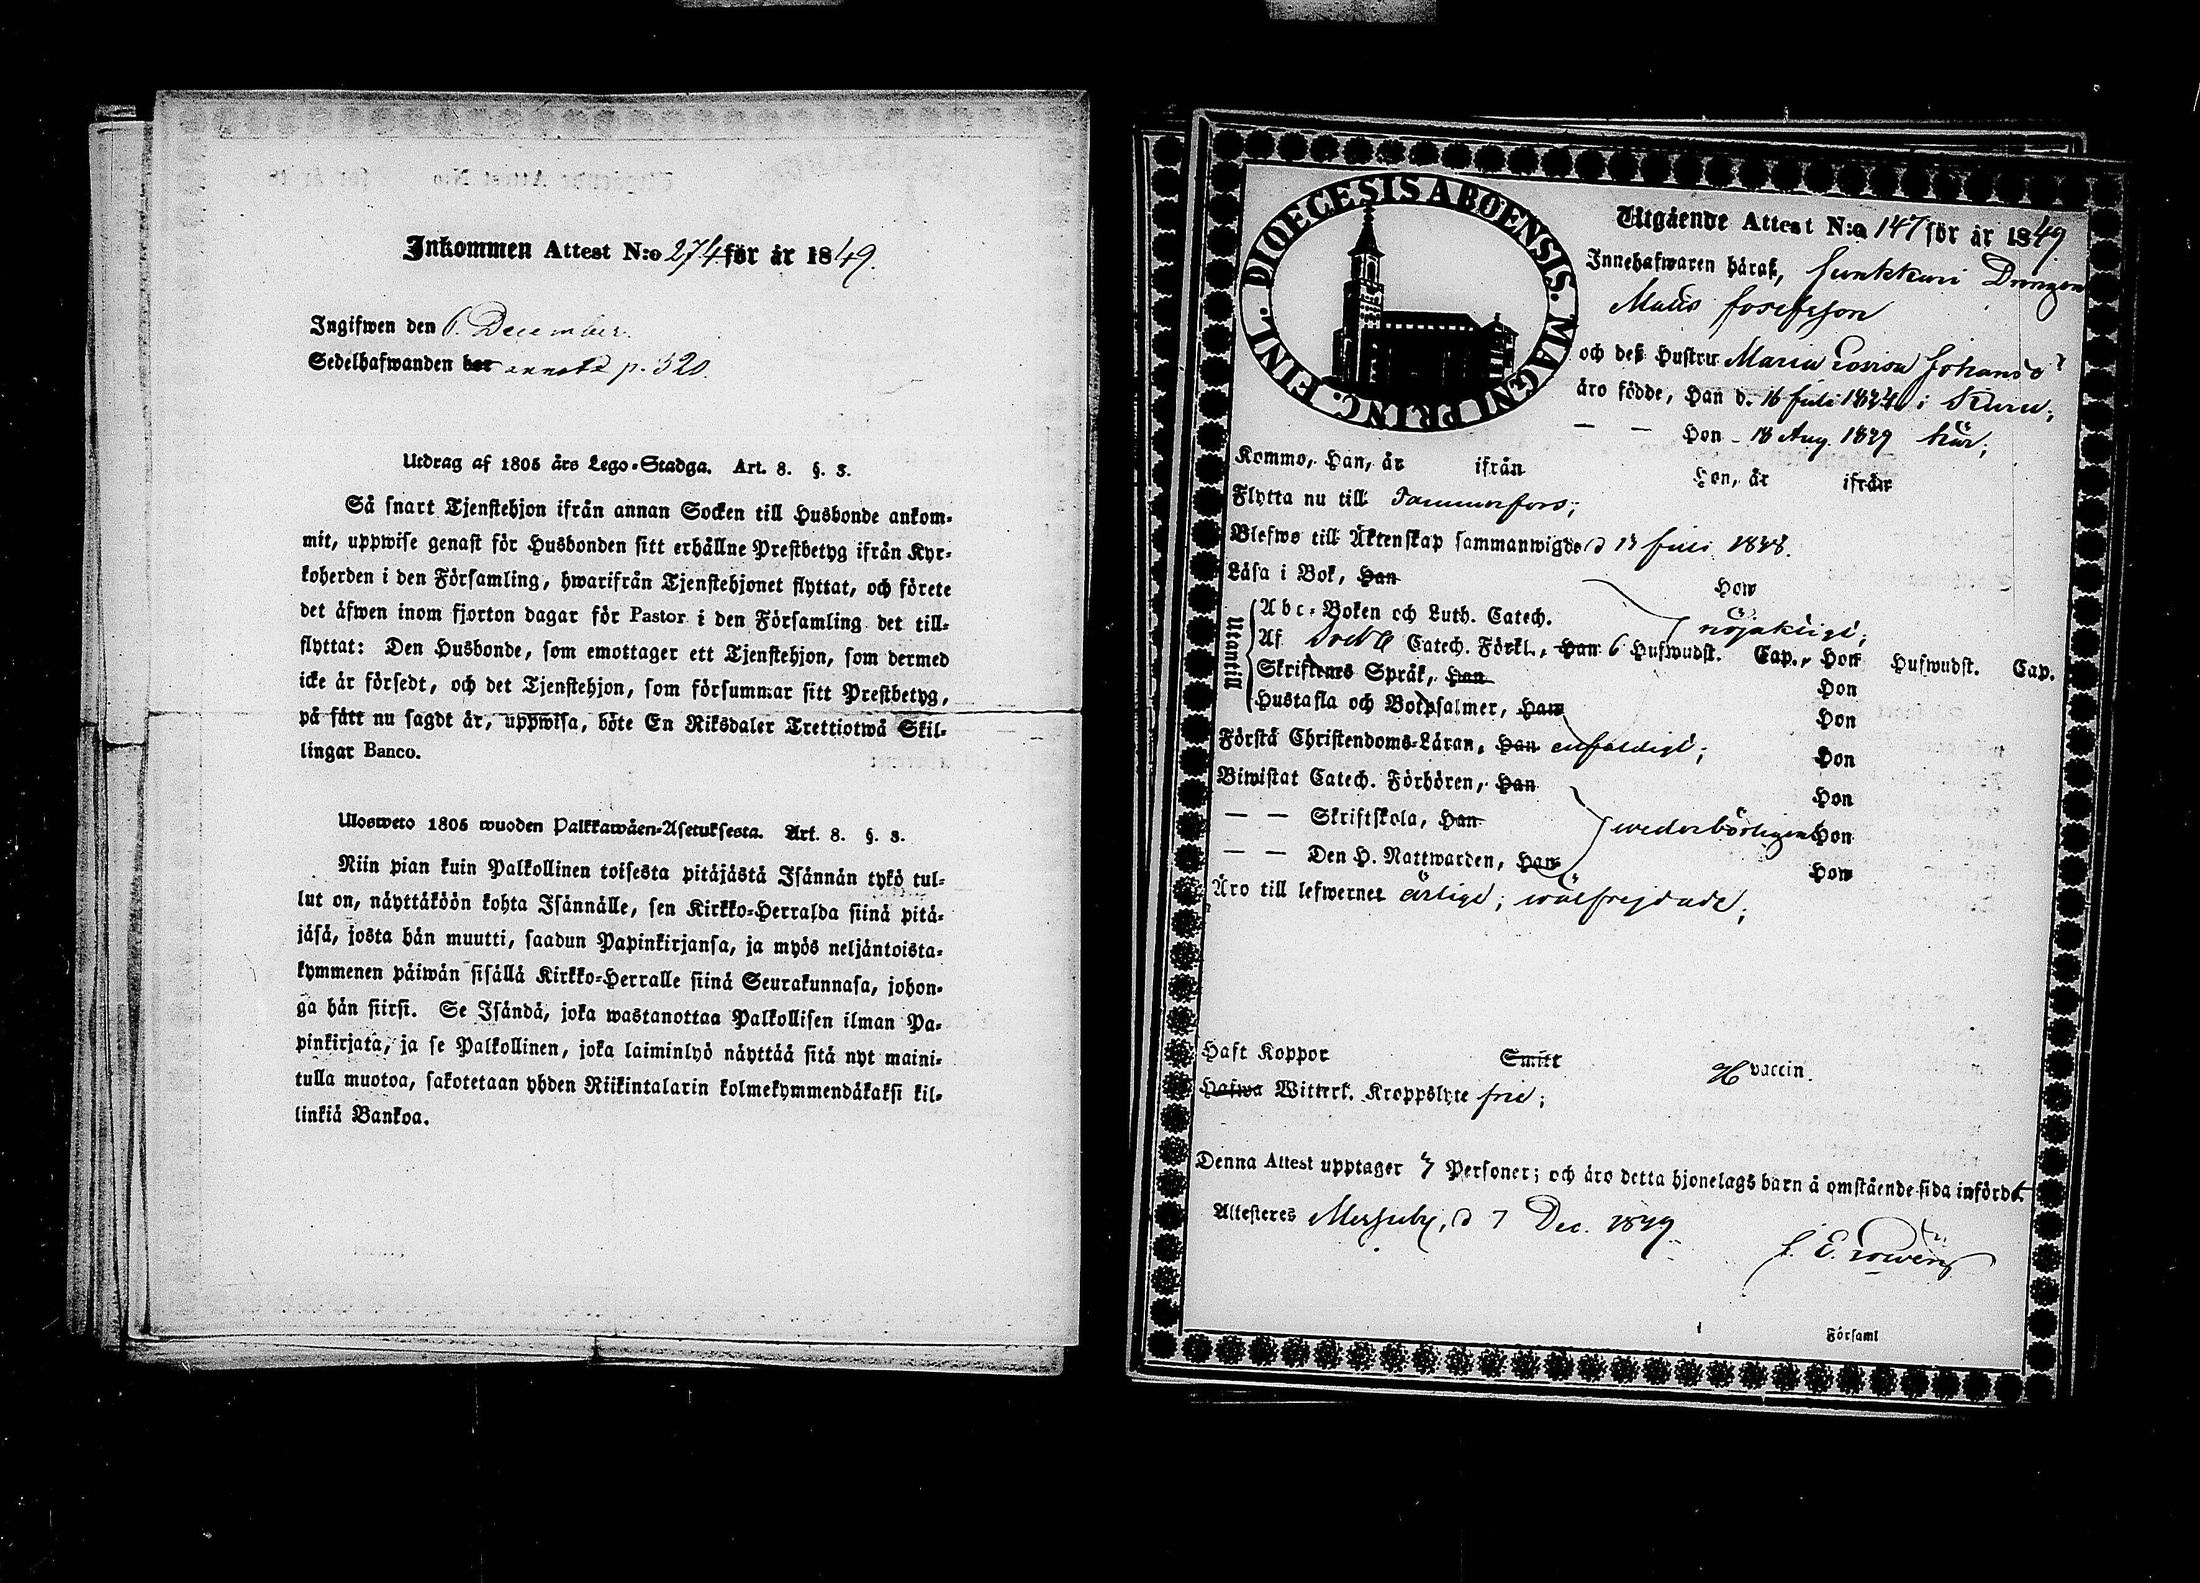 Inkommen Attest N:o 274 för år 1849.
Ingifwen den 6. December.
Sedelhafwanden bor annot. p. 320.
Utdrag af 1805 års Lego-Stadga. Art. 8. §. 3.
Så snart Tjenstehjon ifrån annan Socken till Husbonde ankom-
mit, uppwise genast för Husbonden sitt erhållne Prestbetyg ifrån Kyr-
koherden i den Församling, hwarifrån Tjenstehjonet flyttat, och förete
det äfwen inom fjorton dagar för Pastor i den Församling det till-
flyttat: Den Husbonde, som emottager ett Tjenstehjon, som dermed
icke är försedt, och det Tjenstehjon, som försummar sitt Prestbetyg,
på sätt nu sagdt är, uppwisa, böte En Riksdaler Trettiotwå Skil-
lingar Banco.
Ulosweto 1805 wuoden Palkkawäen-Asetuksesta. Art. 8. §. 3.
Niin pian kuin Palkollinen toisesta pitäjästä Isännän tykö tul-
lut on, näyttäköön kohta Isännälle, sen Kirkko-Herralda siinä pitä-
jäsä, josta hän muutti, saadun Papinkirjansa, ja myös neljäntoista-
kymmenen päiwän sisällä Kirkko-Herralle siinä Seurakunnasa, johon-
ga hän siirsi. Se Isändä, joka wastanottaa Palkollisen ilman Pa-
pinkirjata, ja se Palkollinen, joka laiminlyö näyttää sitä nyt maini-
tulla muotoa, sakotetaan yhden Riikintalarin kolmekymmendäkaksi kil-
linkiä Bankoa.
DIOECESIS ABOENSIS. MAGNI PRINC. FINL.
Utgående Attest N:o 147 för år 1849
Innehafwaren häraf, Junkkari Drengen
Matts Josefsson
och deß Hustru Maria Lovisa Johansd:r
äro födde, Han d. 16 Juli 1824 i Kuru;
— — Hon - 18 Aug. 1829 här;
Kommo, Han, år ifrån Hon, år ifrån
Flytta nu till Tammerfors;
Blefwo till Äktenskap sammanwigde d 13 Juli 1848.
Läsa i Bok, Han Hon
Utantill
Abc-Boken och Luth. Catech. nöjaktigt;
Af Catech. Förkl., Han 6 Hufwudst. Cap., Hon Hufwudst. Cap.
Skriftenes Språk, Han Hon
Hustafla och Botpsalmer, Han Hon
Förstå Christendoms-Läran, Han enfaldigt; Hon
Biwistat Catech. Förhören, Han Hon
— — Skriftskola, Han wederbörligen Hon
— — Den H. Nattwarden, Han Hon
Äro till lefwernet ärlige; wälfrejdade;
Haft Koppor Smitt vaccin.
Hafwa Witterl. Kroppslyte frie;
Denna Attest upptager 3 Personer; och äro detta hjonelags barn å omstående sida införde.
Attesteres Messuby, d 3 Dec. 1849.
Församl